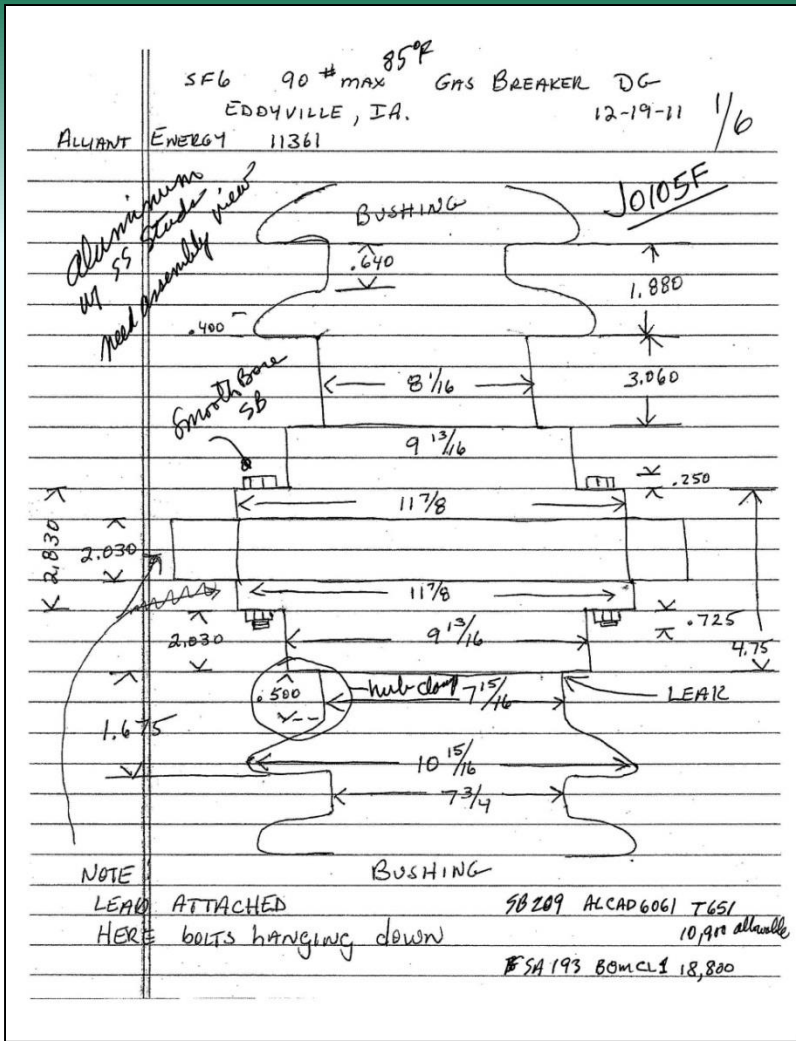 85°F
SF6 90 # max GAS BREAKER DG
EDDYVILLE, IA. 12-19-11 1/6
ALLIANT ENERGY 11361
Aluminum
w/ SS Studs
need assembly view
J0105F
BUSHING
.640
1.880
.400
Smooth Bore
SB
8 1/16
3.060
9 13/16
.250
11 7/8
2.830
2.030
11 7/8
.725
2.030
9 13/16
4.75
.500
hub clamp
7 15/16
LEAK
1.675
10 15/16
7 3/4
NOTE
BUSHING
LEAD ATTACHED
HERE bolts hanging down
SB209 ALCAD6061 T651
10,900 allowable
SA193 B8M CL1 18,800